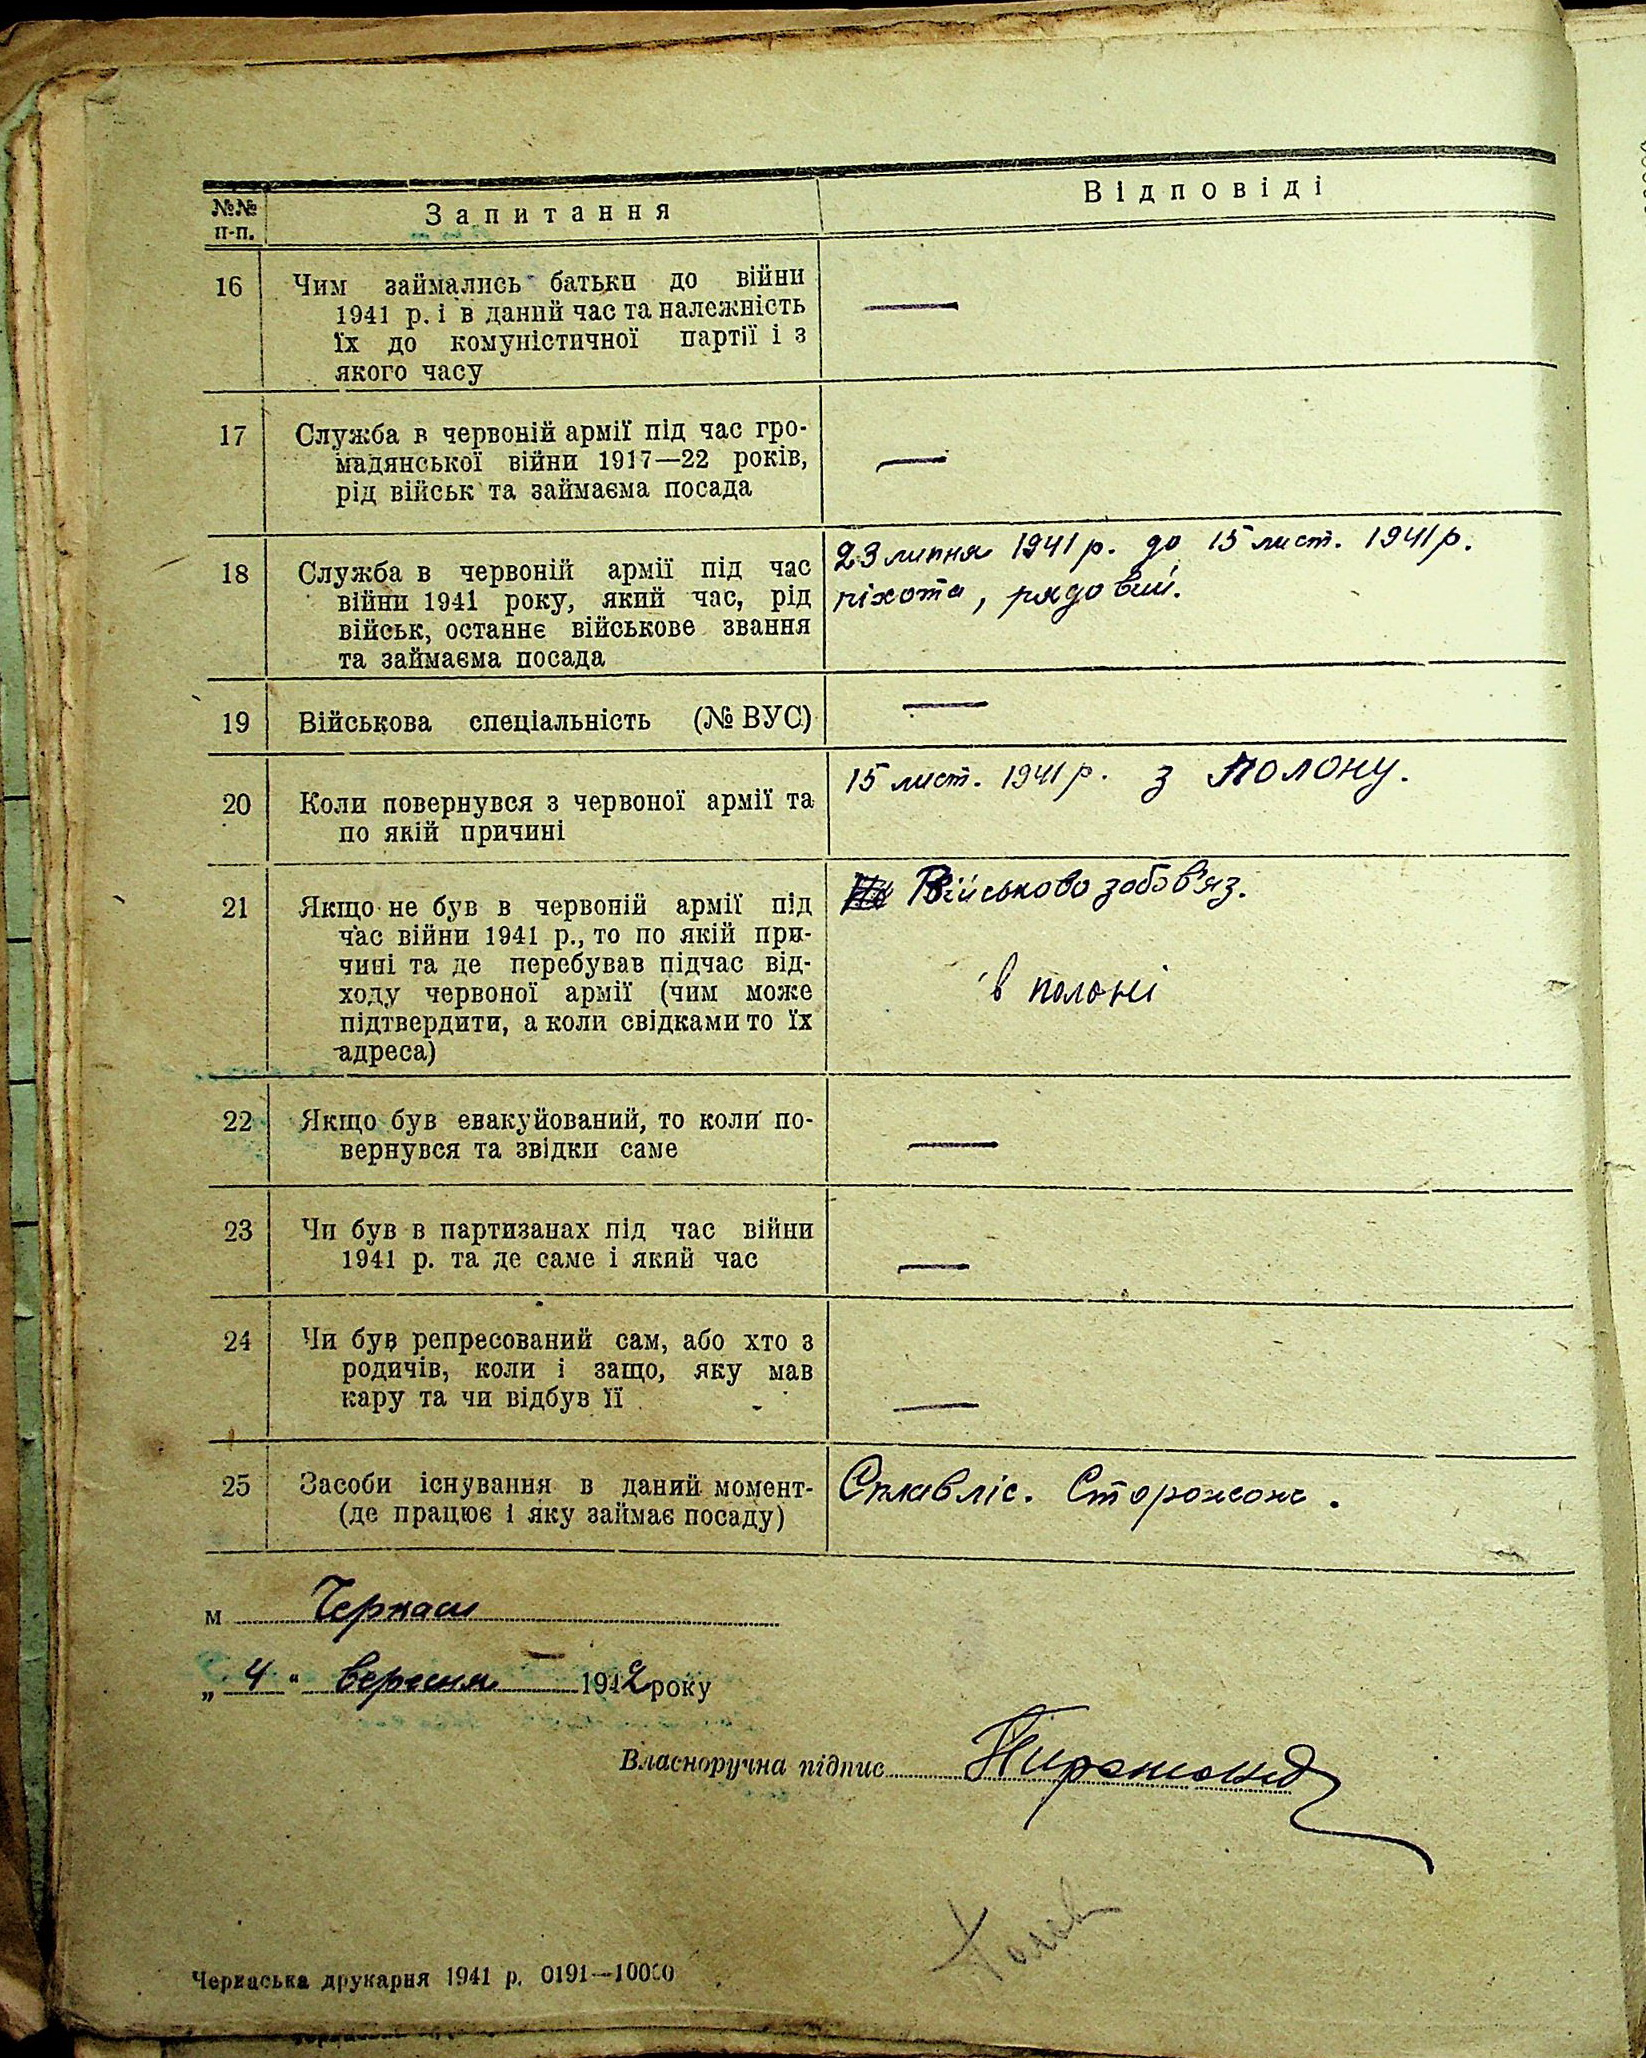 №№ п-п.
Запитання
Відповіді
16 Чим займались батьки до війни
1941 р. і в даний час та належність
їх до комуністичної партії і з
якого часу
—
17 Служба в червоній армії під час гро-
мадянської війни 1917—22 років,
рід військ та займаєма посада
—
18 Служба в червоній армії під час
війни 1941 року, який час, рід
військ, останнє військове звання
та займаєма посада
23 липня 1941 р. до 15 лист. 1941 р.
піхота, рядовий.
19 Військова спеціальність (№ ВУС)
—
20 Коли повернувся з червоної армії та
по якій причині
15 лист. 1941 р. з полону.
21 Якщо не був в червоній армії під
час війни 1941 р., то по якій при-
чині та де перебував підчас від-
ходу червоної армії (чим може
підтвердити, а коли свідками то їх
адреса)
Військовозобов'яз.
в полоні
22 Якщо був евакуйований, то коли по-
вернувся та звідки саме
—
23 Чи був в партизанах під час війни
1941 р. та де саме і який час
—
24 Чи був репресований сам, або хто з
родичів, коли і защо, яку мав
кару та чи відбув її
—
25 Засоби існування в даний момент-
(де працює і яку займає посаду)
Сплавліс. Сторожом.
м Черкаси
„ 4 " вересня 1942 року
Власноручна підпис
Черкаська друкарня 1941 р. 0191—10000